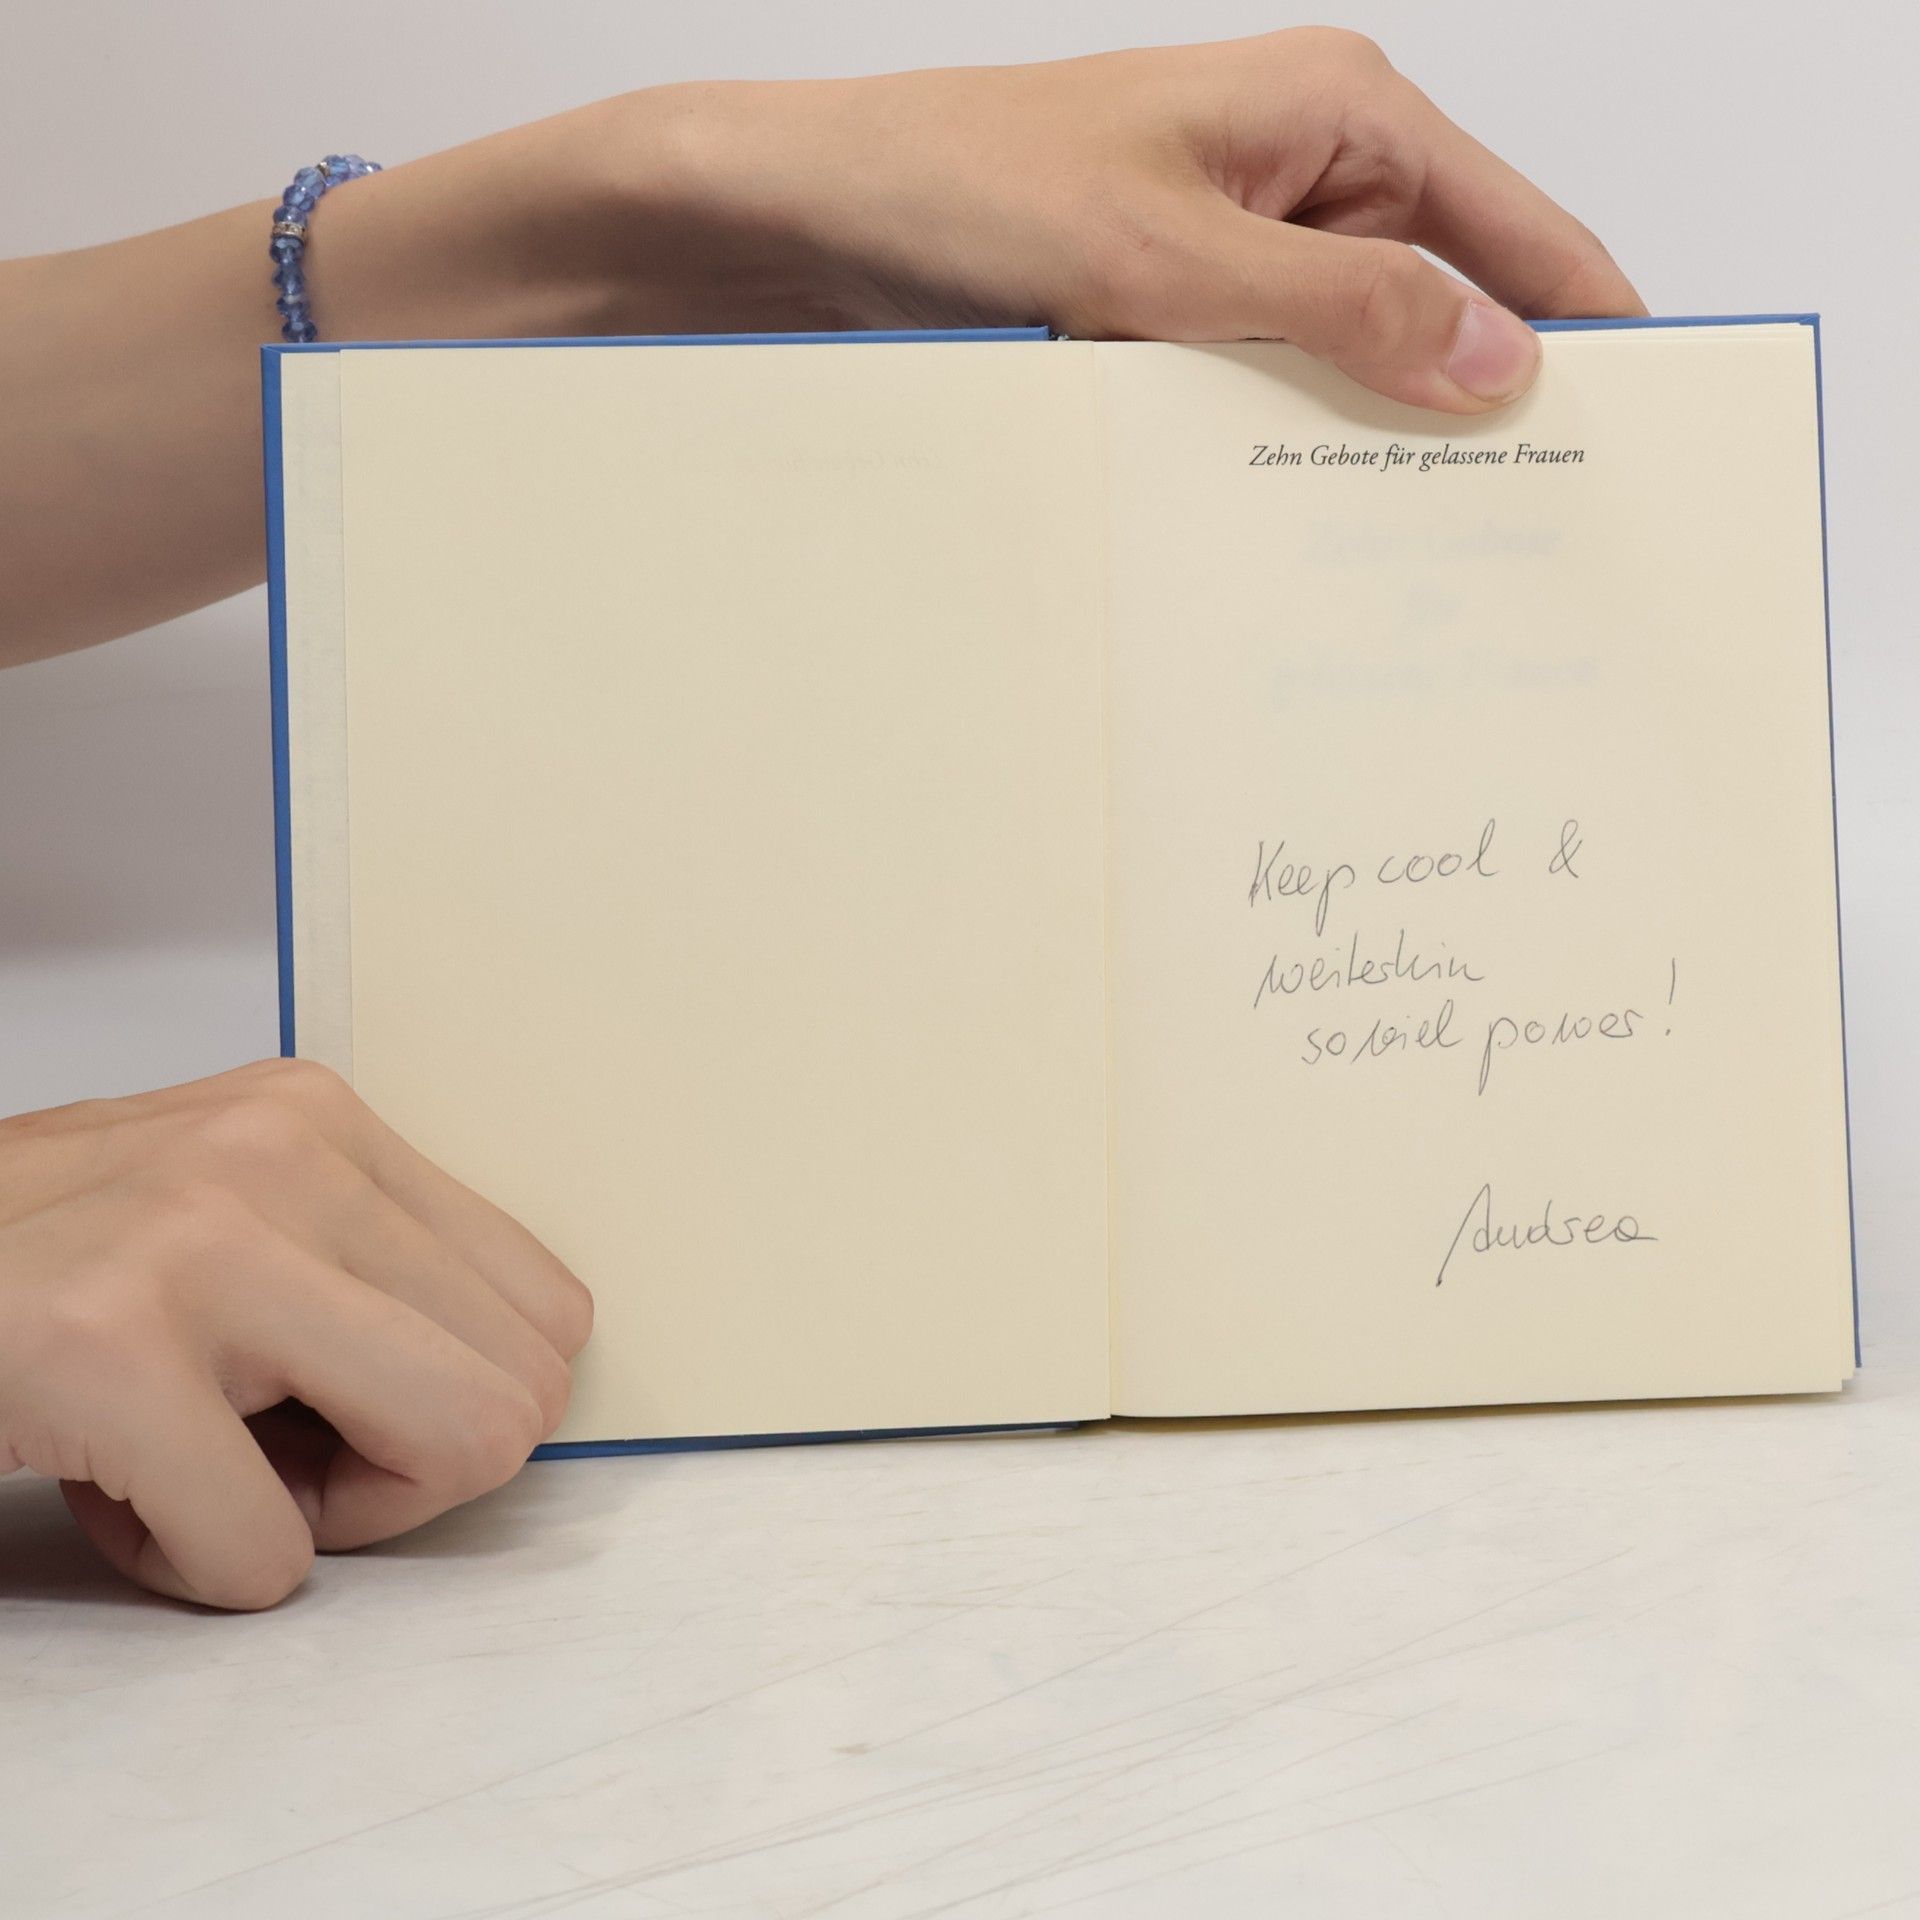 Zehn Gebote für gelassene Frauen
Keep cool &
weiterhin
so viel power!
Andrea